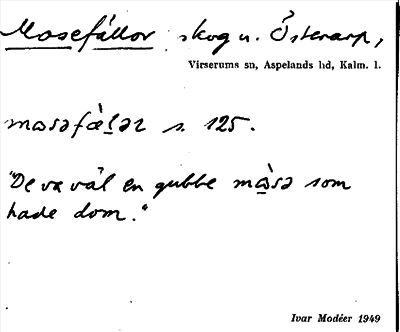 Mosefällor skog u. Österarp,
Virserums sn, Aspelands hd, Kalm. l.
mɷsəfæ̀ḷəɿ s. 125.
"De va väl en gubbe mɷ̀sə som
hade dom."
Ivar Modéer 1949